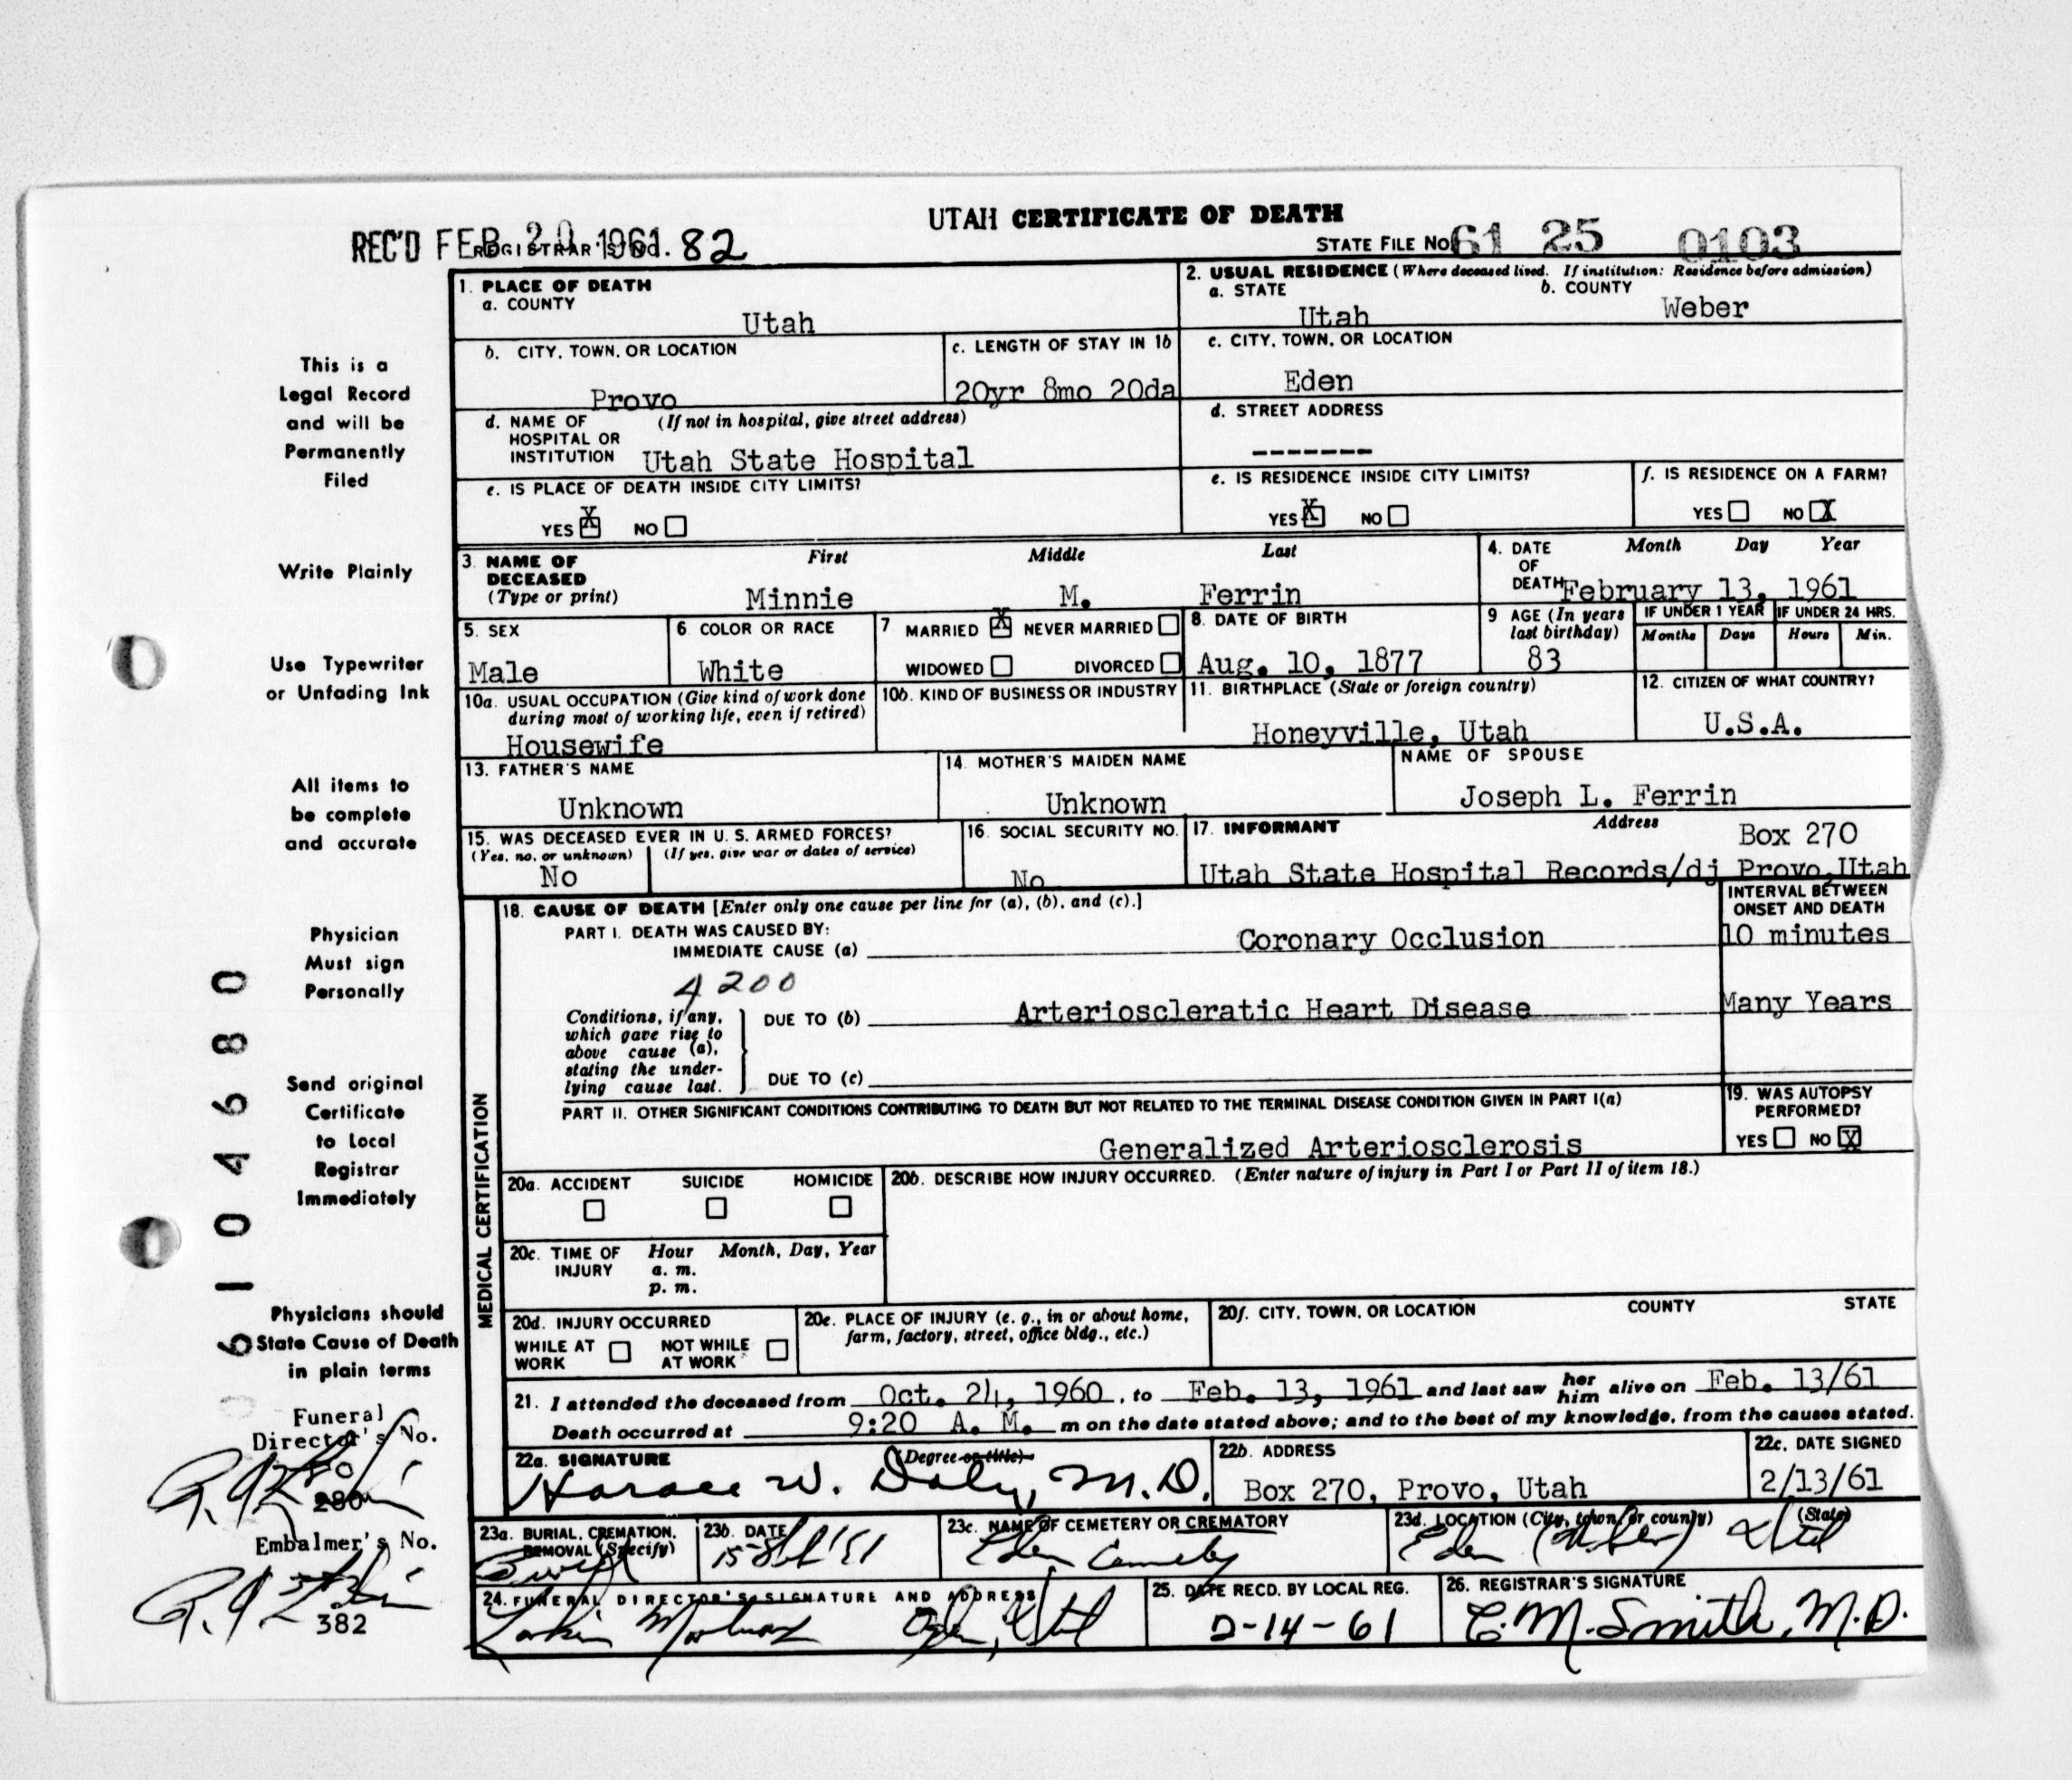 UTAH CERTIFICATE OF DEATH
REC'D FEB 20 1961
REGISTRAR'S NO. 82
STATE FILE NO. 61 25 0103
1. PLACE OF DEATH
a. COUNTY
Utah
2. USUAL RESIDENCE (Where deceased lived. If institution: Residence before admission)
a. STATE b. COUNTY
Utah Weber
b. CITY, TOWN, OR LOCATION
Provo
c. LENGTH OF STAY IN 1b
20yr 8mo 20da
c. CITY, TOWN, OR LOCATION
Eden
d. NAME OF (If not in hospital, give street address)
HOSPITAL OR
INSTITUTION Utah State Hospital
d. STREET ADDRESS
-------
e. IS PLACE OF DEATH INSIDE CITY LIMITS?
YES X NO
e. IS RESIDENCE INSIDE CITY LIMITS?
YES X NO
f. IS RESIDENCE ON A FARM?
YES NO X
3. NAME OF DECEASED (Type or print)
First Middle Last
Minnie M. Ferrin
4. DATE OF DEATH
Month Day Year
February 13, 1961
5. SEX
Male
6. COLOR OR RACE
White
7. MARRIED X NEVER MARRIED
WIDOWED DIVORCED
8. DATE OF BIRTH
Aug. 10, 1877
9 AGE (In years last birthday)
83
IF UNDER 1 YEAR IF UNDER 24 HRS.
Months Days Hours Min.
10a. USUAL OCCUPATION (Give kind of work done during most of working life, even if retired)
Housewife
10b. KIND OF BUSINESS OR INDUSTRY
11. BIRTHPLACE (State or foreign country)
Honeyville, Utah
12. CITIZEN OF WHAT COUNTRY?
U.S.A.
13. FATHER'S NAME
Unknown
14. MOTHER'S MAIDEN NAME
Unknown
NAME OF SPOUSE
Joseph L. Ferrin
15. WAS DECEASED EVER IN U. S. ARMED FORCES?
(Yes, no, or unknown) (If yes, give war or dates of service)
No
16. SOCIAL SECURITY NO.
No
17. INFORMANT Address
Box 270
Utah State Hospital Records/dj Provo,Utah
MEDICAL CERTIFICATION
18. CAUSE OF DEATH [Enter only one cause per line for (a), (b), and (c).]
INTERVAL BETWEEN ONSET AND DEATH
PART I. DEATH WAS CAUSED BY:
IMMEDIATE CAUSE (a) Coronary Occlusion 10 minutes
4200
Conditions, if any, which gave rise to above cause (a), stating the underlying cause last.
DUE TO (b) Arterioscleratic Heart Disease Many Years
DUE TO (c)
PART II. OTHER SIGNIFICANT CONDITIONS CONTRIBUTING TO DEATH BUT NOT RELATED TO THE TERMINAL DISEASE CONDITION GIVEN IN PART I(a)
Generalized Arteriosclerosis
19. WAS AUTOPSY PERFORMED?
YES NO X
20a. ACCIDENT SUICIDE HOMICIDE
20b. DESCRIBE HOW INJURY OCCURRED. (Enter nature of injury in Part I or Part II of item 18.)
20c. TIME OF INJURY Hour Month, Day, Year
a. m.
p. m.
20d. INJURY OCCURRED
WHILE AT WORK NOT WHILE AT WORK
20e. PLACE OF INJURY (e. g., in or about home, farm, factory, street, office bldg., etc.)
20f. CITY, TOWN, OR LOCATION COUNTY STATE
21. I attended the deceased from Oct. 24, 1960, to Feb. 13, 1961 and last saw her him alive on Feb. 13/61
Death occurred at 9:20 A. M. m on the date stated above; and to the best of my knowledge, from the causes stated.
22a. SIGNATURE (Degree or title)
Horace W. Daly, M.D.
22b. ADDRESS
Box 270, Provo, Utah
22c. DATE SIGNED
2/13/61
23a. BURIAL, CREMATION, REMOVAL (Specify)
Burial
23b. DATE
23c. NAME OF CEMETERY OR CREMATORY
Eden Cemetery
23d. LOCATION (City, town, or county) (State)
Eden (Weber) Utah
24. FUNERAL DIRECTOR'S SIGNATURE AND ADDRESS
Larkin Mortuary Ogden, Utah
25. DATE RECD. BY LOCAL REG.
2-14-61
26. REGISTRAR'S SIGNATURE
C. M. Smith, M.D.
This is a
Legal Record
and will be
Permanently
Filed
Write Plainly
Use Typewriter
or Unfading Ink
All items to
be complete
and accurate
Physician
Must sign
Personally
Send original
Certificate
to Local
Registrar
Immediately
Physicians should
State Cause of Death
in plain terms
Funeral
Director's No.
280
Embalmer's No.
382
6104680